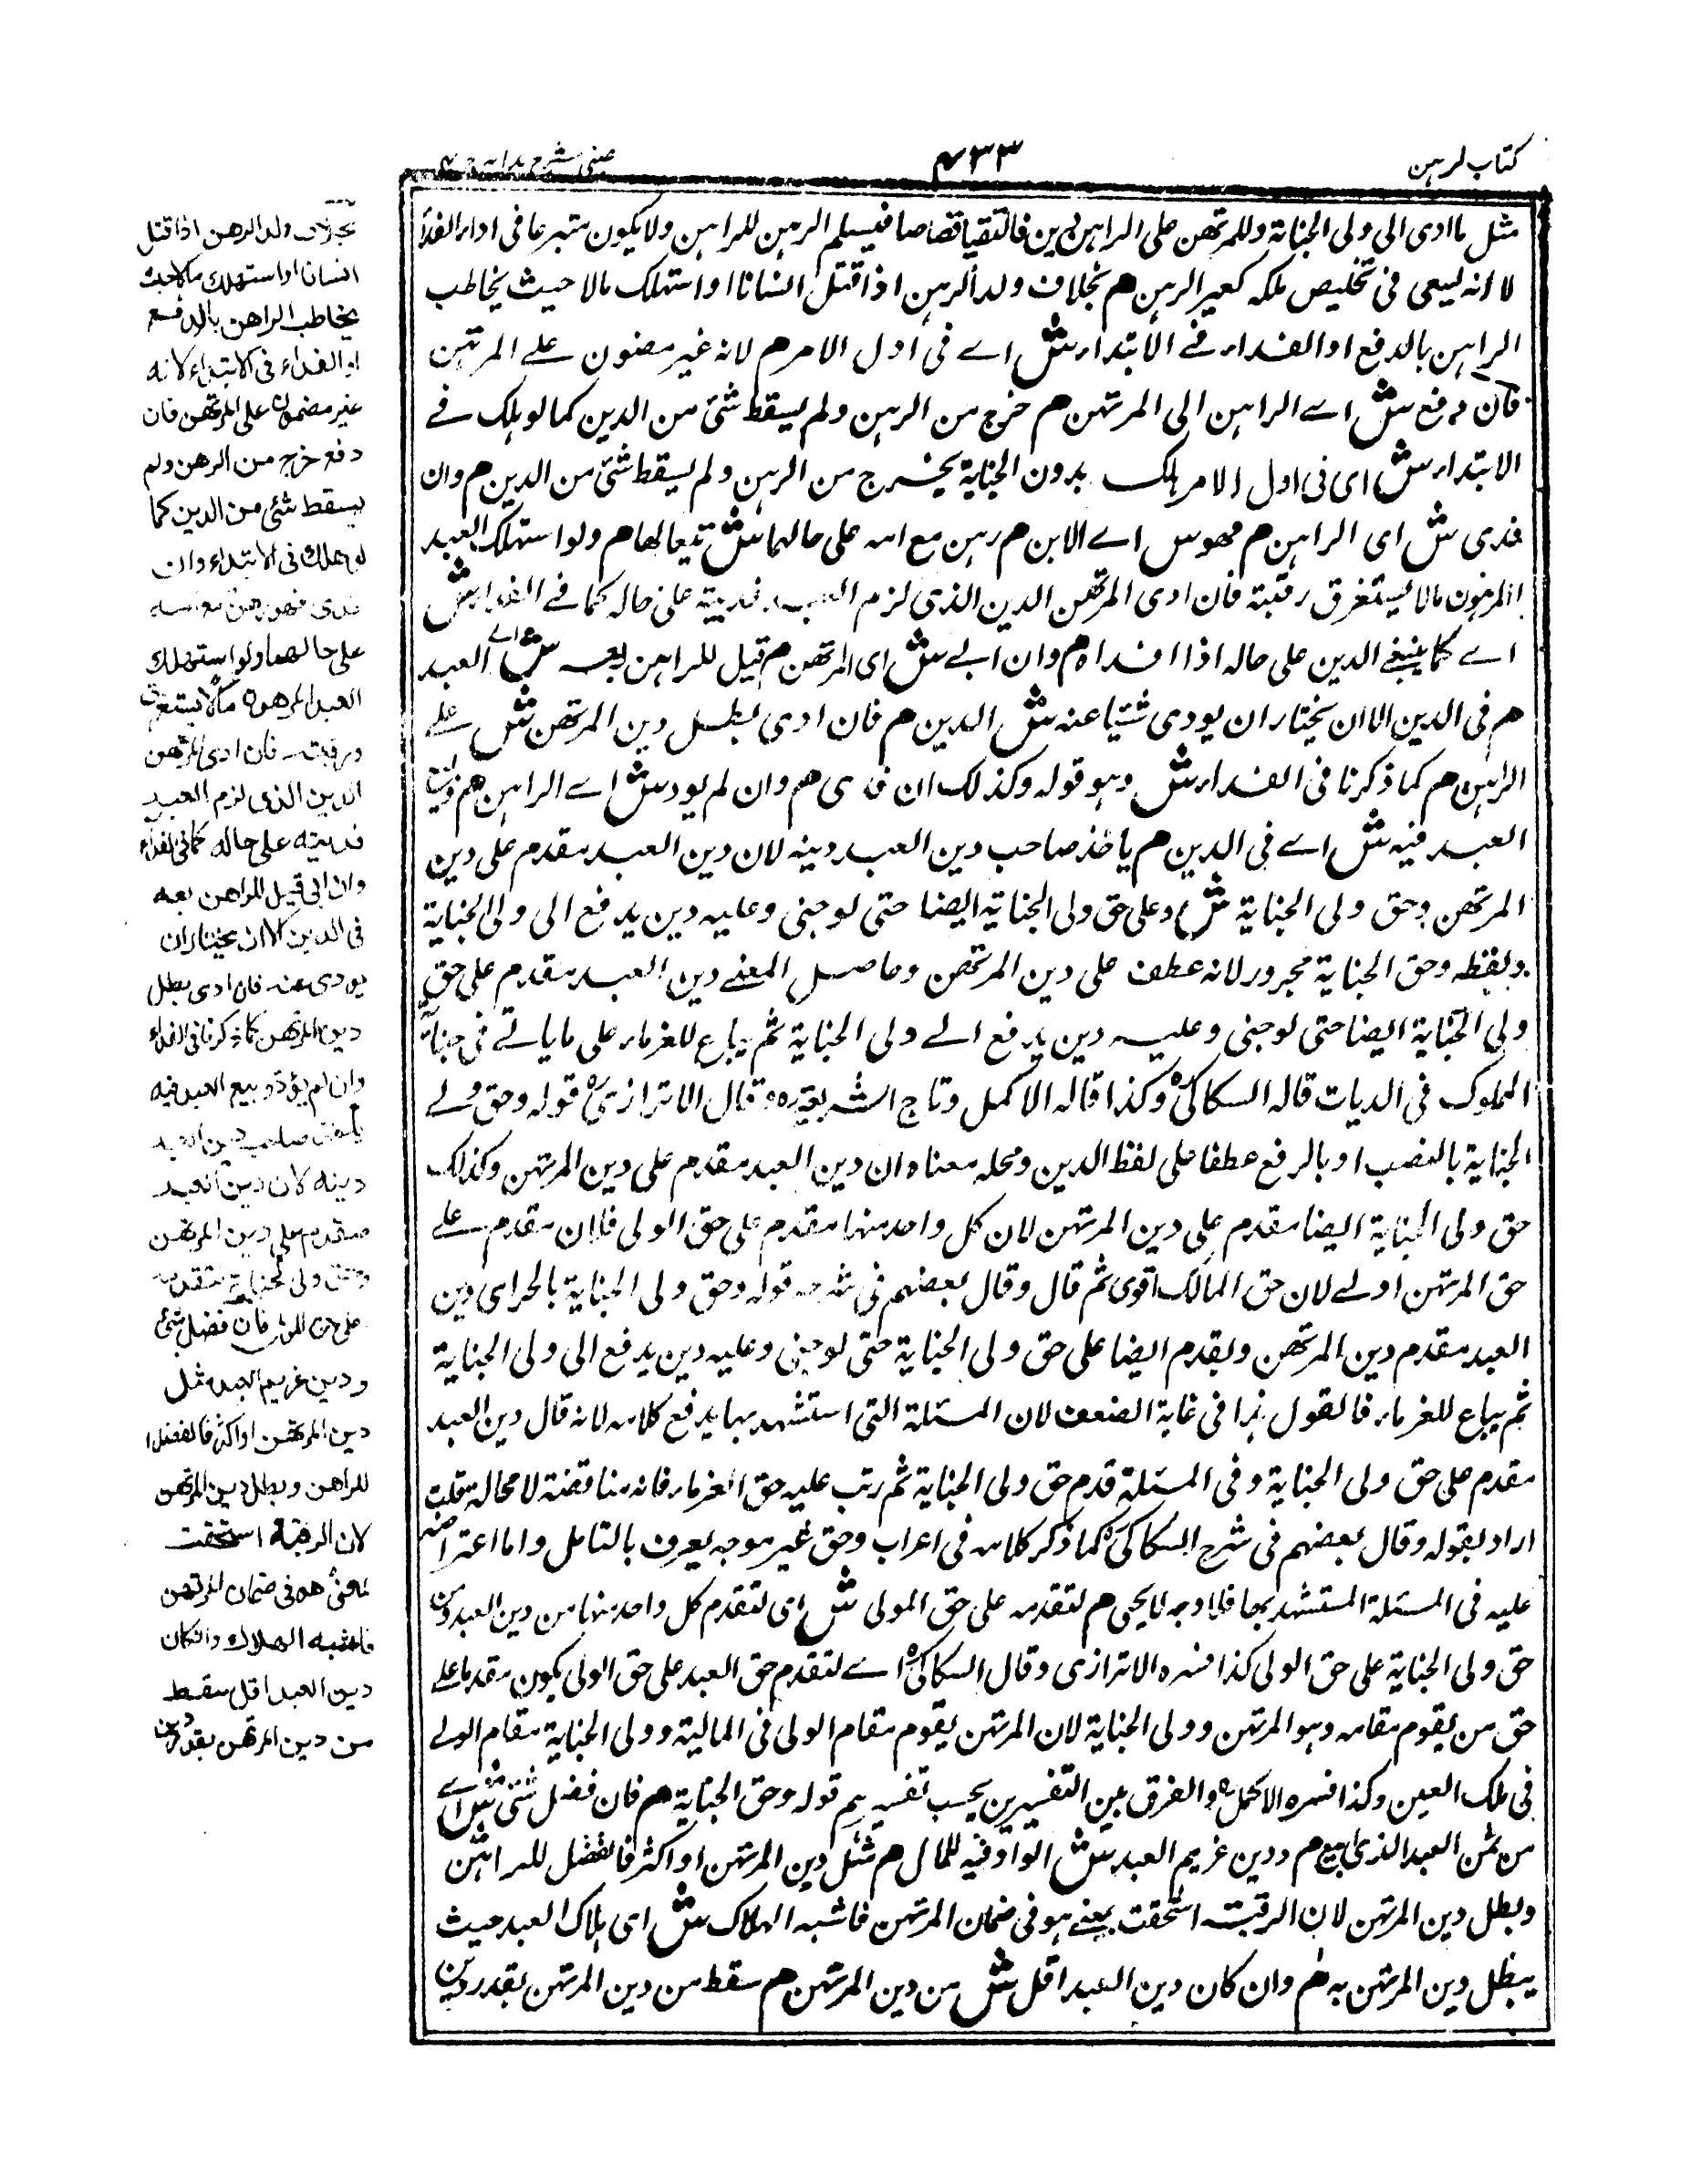 كتاب لرہن
۷۳۳
عینی شرح ہدایہ
مثل ما ادی الی ولی الجنایة وللمرتهن علی الراہن دین فالتقیا قصاصا فیسلم الرہن للراہن ولا یکون متبرعا فی اداء الفداء
لا انه یسعی فی تخلیص ملکه کمعیر الرہن هم بخلاف ولد الرہن اذا قتل انسانا او استہلک مالا حیث یخاطب
الراہن بالدفع او الفداء فے الابتداء ش اے فی اول الامر هم لانه غیر مضمون علے المرتہن
فان دفع ش اے الراہن الی المرتہن هم خرج من الرہن ولم یسقط شئ من الدین کما لو ہلک فے
الابتداء ش ای فی اول الامر ہلک بدون الجنایة یخرج من الرہن ولم یسقط شئ من الدین هم وان
فدی ش ای الراہن هم فهو ش اے الابن هم رہن مع امه علی حالہما ش تبعا لها هم ولو استہلک العبد
المرہون مالا یستغرق رقبته فان ادی المرتهن الدین الذی لزم العبد فدینه علی حاله کما فے الفداء ش
اے کما یبقے الدین علی حاله اذا افداه هم وان ابے ش ای المرتهن هم قیل للراہن بعه ش اے العبد
هم فی الدین الا ان یختار ان یودی شئیا عنه ش الدین هم فان ادی بطل دین المرتهن ش علے
الراہن هم کما ذکرنا فی الفداء ش وہو قوله وکذلک ان فدی هم وان لم یود ش اے الراہن هم وبیع
العبد فیه ش اے فی الدین هم یاخذ صاحب دین العبد دینه لان دین العبد مقدم علی دین
المرتهن وحق ولی الجنایة ش وعلی حق ولی الجنایة ایضا حتی لو جنی وعلیه دین یدفع الی ولی الجنایة
ولفظه وحق الجنایة مجرور لانه عطف علی دین المرتهن وحاصل المعنے دین العبد مقدم علی حق
ولی الجنایة ایضا حتی لو جنی وعلیه دین یدفع الے ولی الجنایة ثم یباع للغرماء علی ما یاتے فی جنایة
المملوک فی الدیات قاله السکاکی وکذا قاله الاکمل وتاج الشریعة وقال الاترازی قوله وحق ولے
الجنایة بالنصب او بالرفع عطفا علی لفظ الدین ومحله معناه ان دین العبد مقدم علی دین المرتہن وکذلک
حق ولی الجنایة ایضا مقدم علی دین المرتہن لان کل واحد منہا مقدم علی حق الولی فلان مقدم علے
حق المرتہن اولے لان حق المالک اقوی ثم قال وقال بعضہم فی شرحه قوله وحق ولی الجنایة بالجر ای دین
العبد مقدم دین المرتهن ویقدم ایضا علی حق ولی الجنایة حتی لو جنی وعلیه دین یدفع الی ولی الجنایة
ثم یباع للغرماء فالقول ہذا فی غایة الضعف لان المسئلة التی استشہد بہا یدفع کلامه لانه قال دین العبد
مقدم علی حق ولی الجنایة وفی المسئلة قدم حق ولی الجنایة ثم رتب علیه حق الغرماء فانه مناقضة لا محالة قلت
اراد بقوله وقال بعضہم فی شرح السکاکی کما ذکر کلامه فی اعراب وحق غیر موجه یعرف بالتامل واما اعتراضه
علیه فی المسئلة المستشهد بها فلا وجه لا یحی هم لتقدمه علی حق المولی ش ای لتقدم کل واحد منہا من دین العبد ومن
حق ولی الجنایة علی حق الولی کذا فسره الاترازی وقال السکاکی اے لتقدم حق العبد علی حق الولی یکون مقدما علے
حق من یقوم مقامه وہو المرتہن وولی الجنایة لان المرتہن یقوم مقام الولی فی المالیة وولی الجنایة مقام الولے
فی ملک العین وکذا فسره الاکمل والفرق بین التفسیرین یحسب تفسیرہم قوله وحق الجنایة هم فان فضل شئ ش اے
من ثمن العبد الذی بیع هم ودین غریم العبد ش الواو فیه للحال هم مثل دین المرتہن او اکثر فالفضل للراہن
وبطل دین المرتہن لان الرقبة استحقت بمعنے ہو فی ضمان المرتہن فاشبه الہلاک ش ای ہلاک العبد حیث
یبطل دین المرتہن به هم وان کان دین العبد اقل ش من دین المرتہن هم سقط من دین المرتہن بقدر دین
بخلاف ولد الرهن اذا قتل
انسانا او استهلك مالا حيث
يخاطب الراهن بالدفع
او الفداء فى الابتداء لانه
غير مضمون على المرتهن فان
دفع خرج من الرهن ولم
يسقط شئ من الدين كما
لو هلك فى الابتداء وان
فدى فهو رهن مع امه
على حالهما ولو استهلك
العبد المرهون مالا يستغرق
رقبته فان ادى المرتهن
الدين الذى لزم العبد
فدينه على حاله كما فى الفداء
وان ابى قيل للراهن بعه
فى الدين الا ان يختار ان
يودى عنه فان ادى بطل
دين المرتهن كما ذكرنا فى الفداء
وان لم يؤد وبيع العبد فيه
ياخذ صاحب دين العبد
دينه لان دين العبد
مقدم على دين المرتهن
وحق ولى الجناية لتقدمه
على حق المولى فان فضل شئ
ودين غريم العبد مثل
دين المرتهن او اكثر فالفضل
للراهن وبطل دين المرتهن
لان الرقبة استحقت
لمعنى هو فى ضمان المرتهن
فاشبه الهلاك وان كان
دين العبد اقل سقط
من دين المرتهن بقدر دين